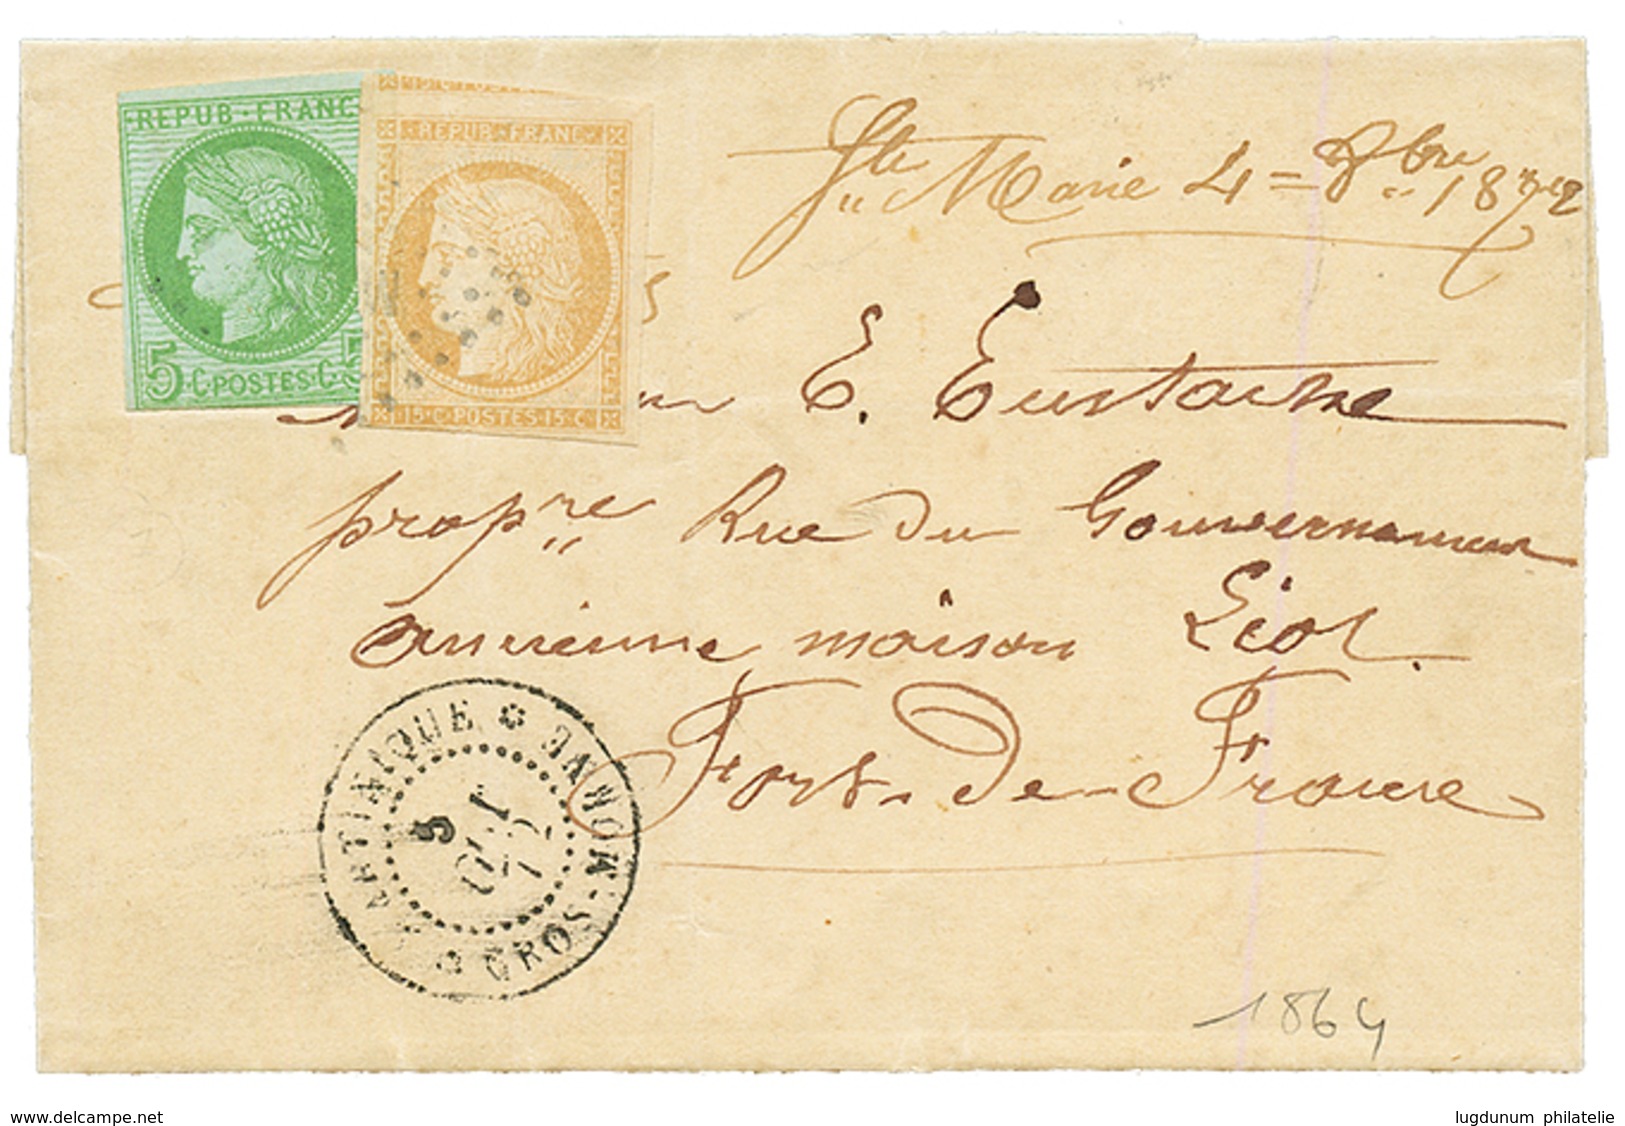 15 C POSTES
REPUB·FRANC
REPUB·FRANC·
5·C·POSTES·C·5
15·C·POSTES·15·C·
Ste Marie 4 = 8bre 1872
E. Eustache
propre Rue du Gouvernement
ancienne maison Liot
Fort-de-France
MARTINIQUE
5
OCT
72
GROS-MORNE
1864
www.delcampe.net
lugdunum philatelie